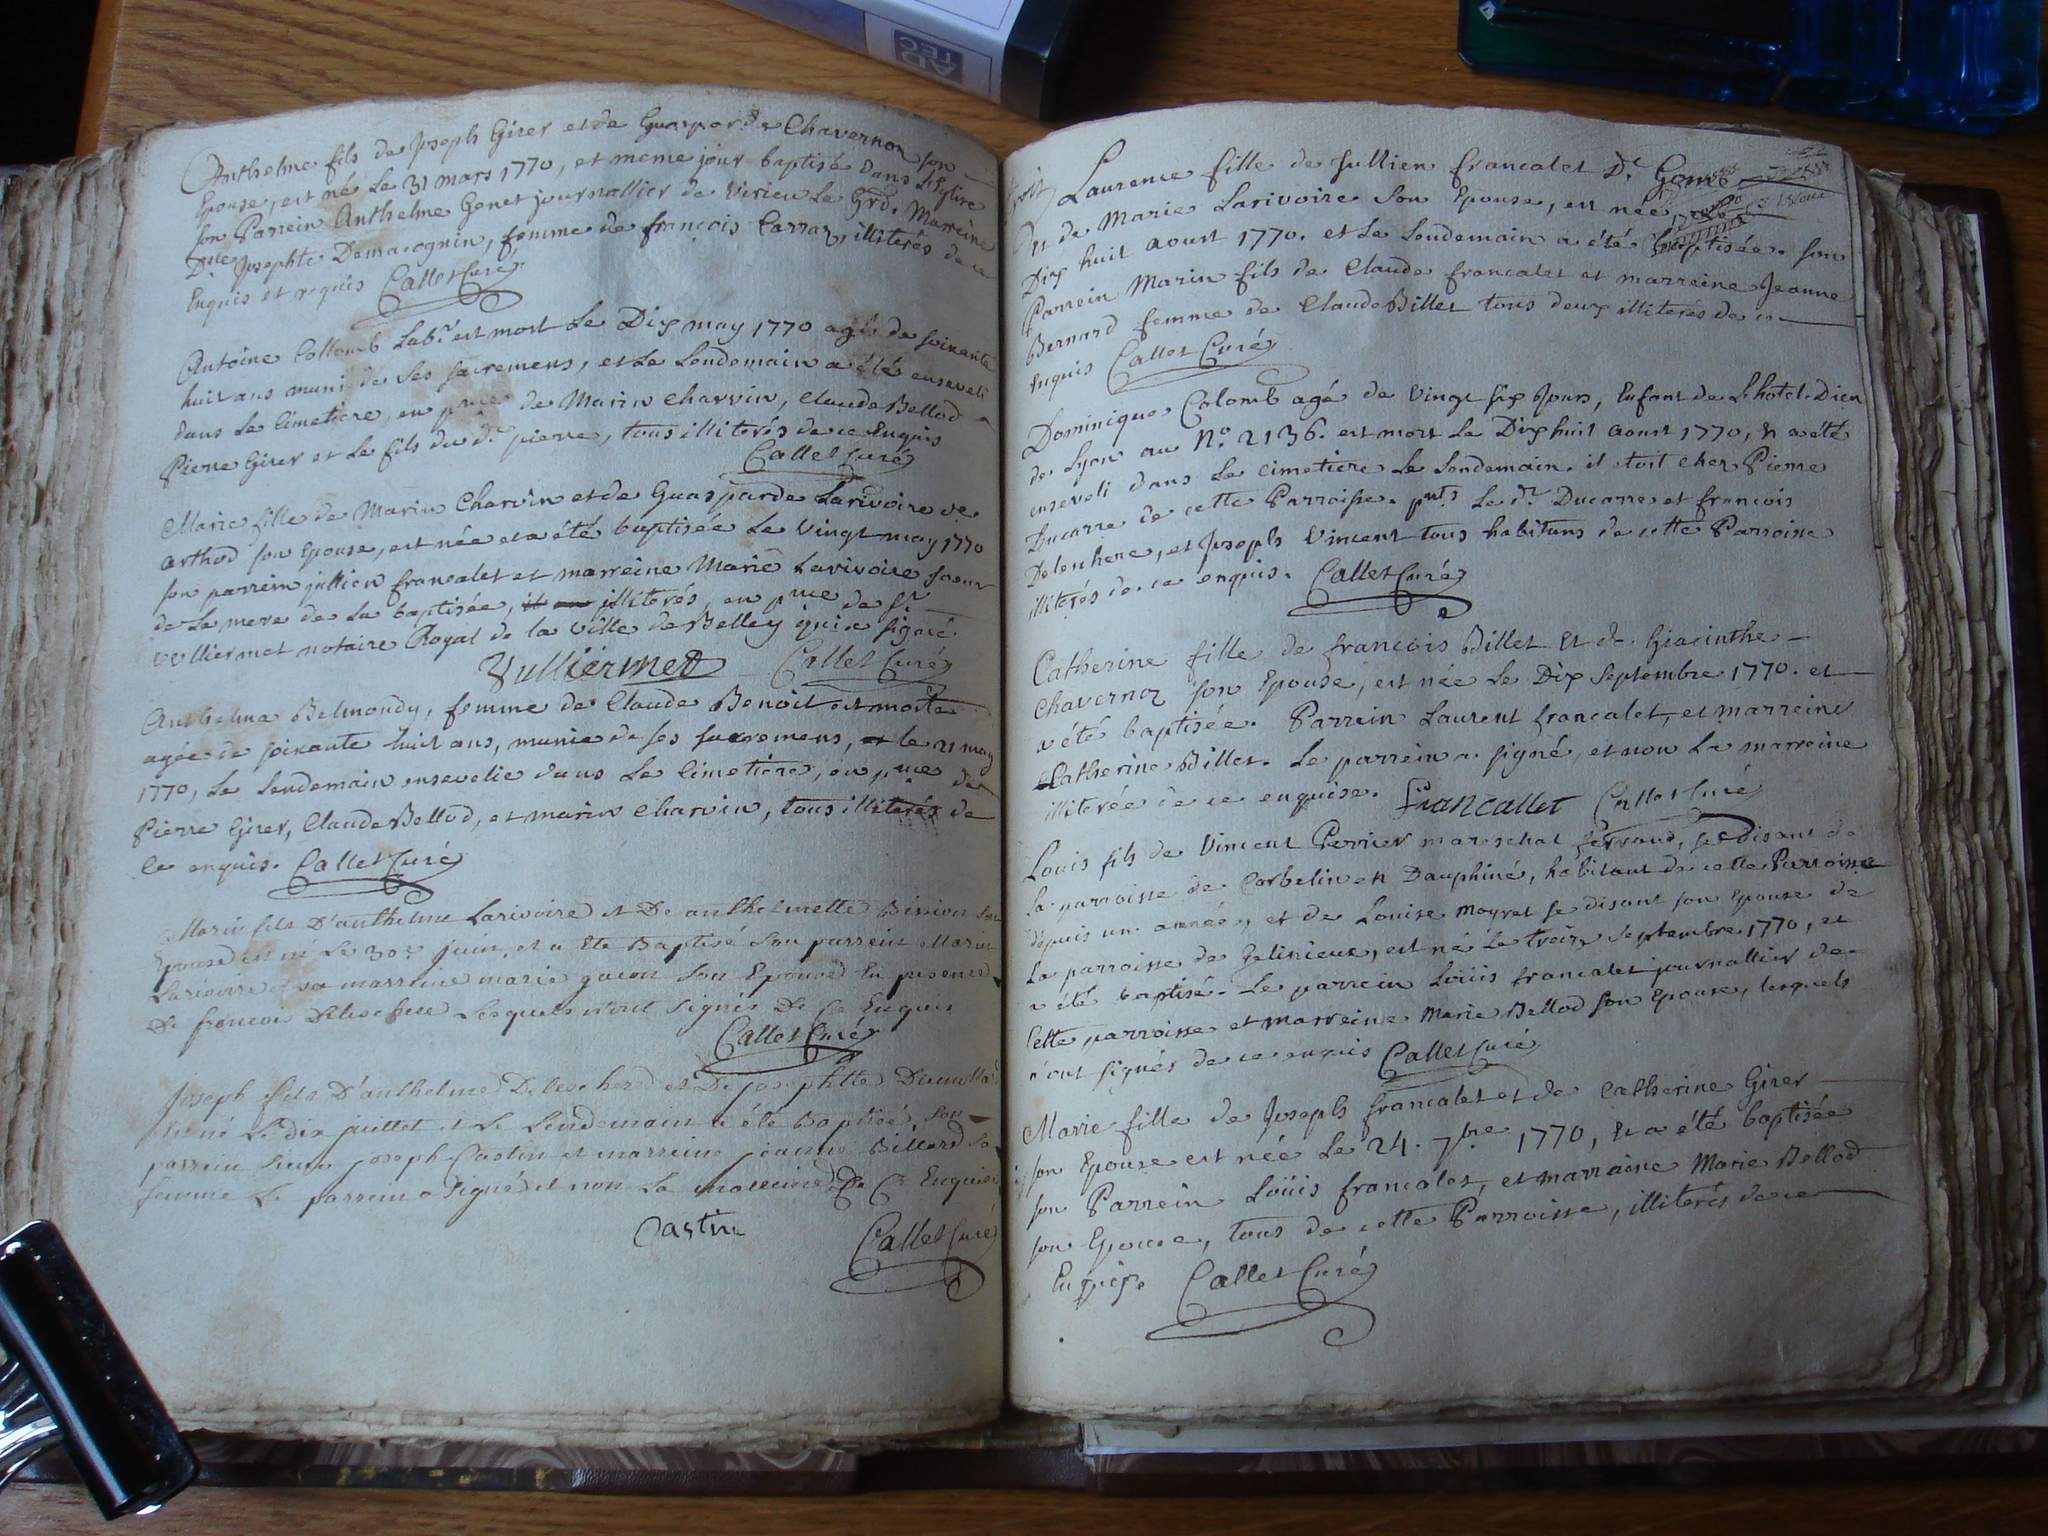 AD
TEC
Anthelme fils de Joseph Girer et de Guasparde Chavernon son
Epouse, est né Le 31 mars 1770, et meme jour baptisé dans L'Eglise
son Parrein Anthelme Genet journallier de Virieu Le Grd. Marreine
Dlle Josephte Demacognin, femme de françois Carraz, illiterés de ce
Enquis et requis Callet Curé
Antoine Collomb Labr. est mort Le Dix may 1770 agé de soixante
huit ans muni de ses sacremens, et Le Lendemain a été enseveli
dans Le Cimetiere, en pnce de Marin Charvin, Claude Bellod
Pierre Girer et Le fils du dt. pierre, tous illiterés de ce Enquis
Callet Curé
Marie fille de Marin Charvin et de Guasparde Larivoire ve
arthod son Epouse, est née et a été baptisée Le Vingt may 1770
son parrein jullien francalet et marreine Marie Larivoire soeur
de La mere de La baptisée, illiterés, en pnce de Sr
vulliermet notaire Royal de la Ville de Belley qui a signé
Vulliermet Callet Curé
Anthelma Belmondy, femme de Claude Benoit est morte
agée de soixante huit ans, munie de ses sacremens, le 21 may
1770, Le Lendemain ensevelie dans Le Cimetiere, en pnce de
Pierre Girer, Claude Bellod, et marin Charvin, tous illiterés de
Ce enquis. Callet Curé
Marin fils D'anthelme Larivoire et De anthelmette Son
Epouse est né Le 30e juin, et a Ete Baptisé Son parrein Marin
Larivoire et sa marreine marie gacon Son Epouse En presence
De francois Delechere Lesquels n'ont Signés De Ce Enquis
Callet Curé
Joseph fils D'anthelme Delechere et De josephtte
est né Le dix juillet et Le Lendemain a été Baptisé, Son
parrein Sieur joseph Castin et marreine jeanne Billerd Sa
femme Le parrein a Signé et non La marreine De Ce Enquise
Castin
Callet Curé
Laurence fille de Jullien francalet Dt.
Et de Marie Larivoire Son Epouse, est née
Dix huit aoust 1770. et Le Lendemain a été baptisée. son
Parrein Marin fils de Claude francalet et marreine Jeanne
Bernard femme de Claude Billet tous deux illiterés de ce
enquis Callet Curé
Dominique Colomb agé de Vingt six Jours, Enfant de L'hotel-Dieu
de Lyon au No. 2136. est mort Le Dix huit aoust 1770, Et a été
enseveli dans Le cimetiere Le Lendemain. il etoit cher Pierre
Ducarre de cette Parroisse. pnts Le dt. Ducarre et francois
Delechere, et Joseph Vincent tous habitans de cette Parroisse
illiterés de ce enquis. Callet Curé
Catherine fille de francois Billet Et de Hiacinthe
Chavernoz son Epouse, est née Le Dix Septembre 1770. et
a été baptisée. Parrein Laurent francalet, et marreine
Catherine Billet. Le parrein a signé, et non La marreine
illiterée de ce enquise. Francallet Callet Curé
Louis fils de Vincent Perrier mareschal ferrand, se disant de
La parroisse de Corbelin en Dauphiné, habitant de cette Parroisse
depuis un année, et de Louise Mayret se disant son Epouse de
La parroisse de Gelinieux, est né Le treize septembre 1770, et
a été baptisé. Le parrein Loüis francalet journallier de
Cette parroisse et marreine Marie Bellod son Epouse, lesquels
n'ont signés de ce enquis Callet Curé
Marie fille de Joseph francalet et de Catherine Girer
son Epouse est née Le 24. 7bre 1770, Et a été baptisée
son Parrein Loüis francalet, et marraine Marie Bellod
son Epouse, tous de cette Parroisse, illiterés de ce
Enquis. Callet Curé